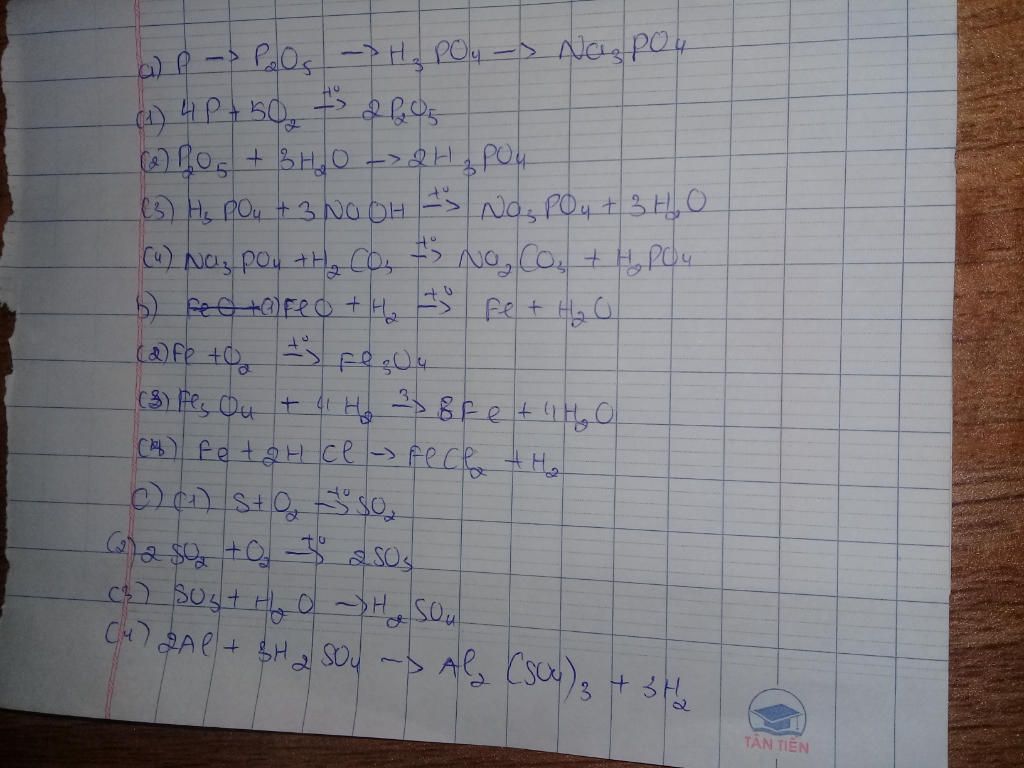 a) P → P₂O₅ → H₃PO₄ → Na₃PO₄
(1) 4P + 5O₂ t°→ 2P₂O₅
(2) P₂O₅ + 3H₂O → 2H₃PO₄
(3) H₃PO₄ + 3NaOH t°→ Na₃PO₄ + 3H₂O
(4) Na₃PO₄ + H₂CO₃ t°→ Na₂CO₃ + H₂PO₄
b) (1) FeO + H₂ t°→ Fe + H₂O
(2) Fe + O₂ t°→ Fe₃O₄
(3) Fe₃O₄ + 4H₂ → 3Fe + 4H₂O
(4) Fe + 2HCl → FeCl₂ + H₂
c) (1) S + O₂ t°→ SO₂
(2) 2SO₂ + O₂ t°→ 2SO₃
(3) SO₃ + H₂O → H₂SO₄
(4) 2Al + 3H₂SO₄ → Al₂(SO₄)₃ + 3H₂
TÂN TIẾN